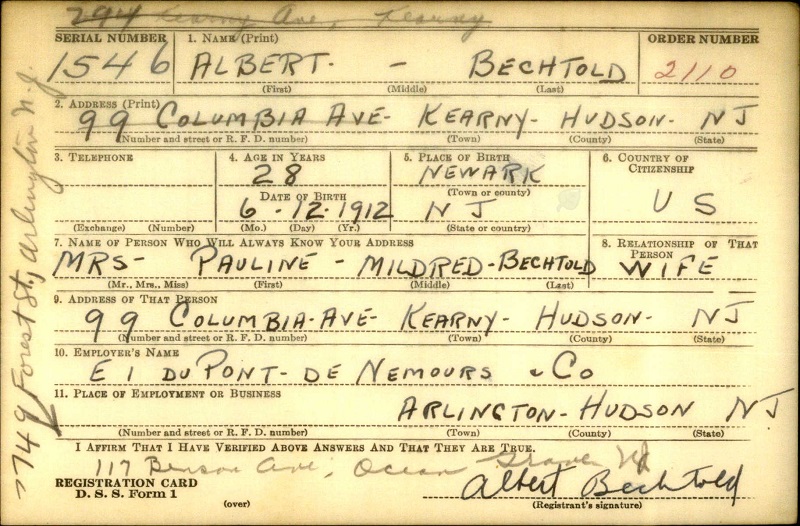 294 Kearny Ave, Kearny
SERIAL NUMBER 1. NAME (Print) ORDER NUMBER
1546 ALBERT - BECHTOLD 2110
(First) (Middle) (Last)
2. ADDRESS (Print)
99 COLUMBIA AVE- KEARNY- HUDSON- NJ
(Number and street or R. F. D. number) (Town) (County) (State)
3. TELEPHONE 4. AGE IN YEARS 5. PLACE OF BIRTH 6. COUNTRY OF CITIZENSHIP
28 NEWARK
(Town or county)
DATE OF BIRTH
6-12-1912 NJ US
(Exchange) (Number) (Mo.) (Day) (Yr.) (State or country)
7. NAME OF PERSON WHO WILL ALWAYS KNOW YOUR ADDRESS 8. RELATIONSHIP OF THAT PERSON
MRS- PAULINE - MILDRED-BECHTOLD WIFE
(Mr., Mrs., Miss) (First) (Middle) (Last)
9. ADDRESS OF THAT PERSON
99 COLUMBIA-AVE- KEARNY- HUDSON- NJ
(Number and street or R. F. D. number) (Town) (County) (State)
10. EMPLOYER'S NAME
E I DU PONT- DE NEMOURS & CO
11. PLACE OF EMPLOYMENT OR BUSINESS
ARLINGTON-HUDSON NJ
(Number and street or R. F. D. number) (Town) (County) (State)
I AFFIRM THAT I HAVE VERIFIED ABOVE ANSWERS AND THAT THEY ARE TRUE.
117 Benson Ave, Ocean Grove NJ
REGISTRATION CARD
D. S. S. Form 1
(over)
Albert Bechtold
(Registrant's signature)
749 Forest St, Arlington N.J.